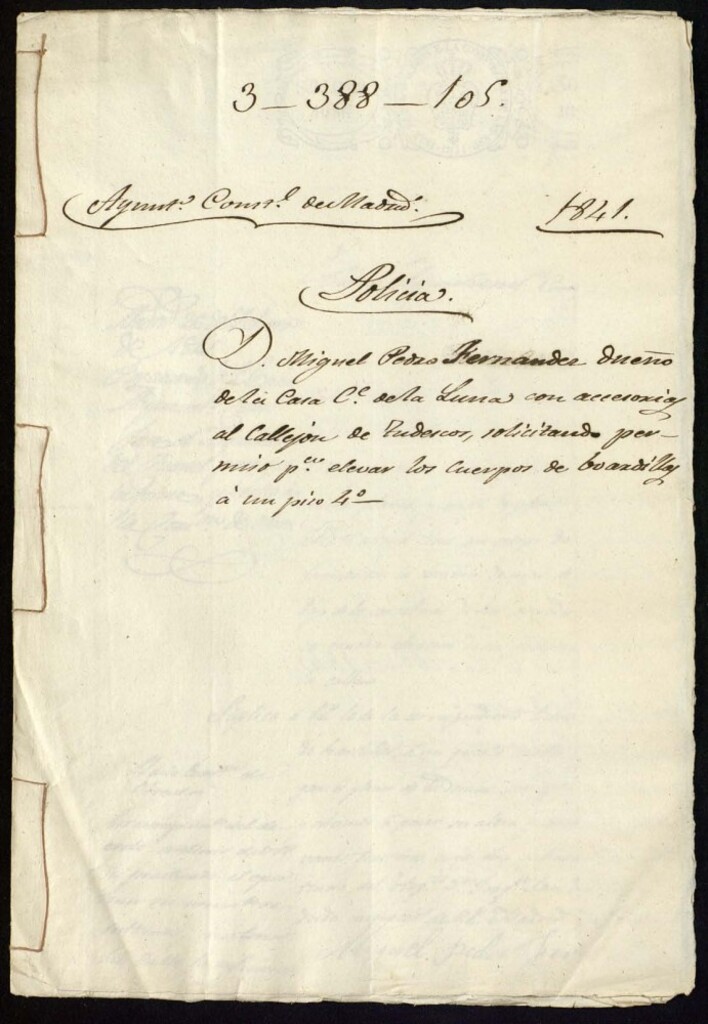 3 - 388 - 105.
Ayunt.º Const.l de Madrid. 1841.
Policia.
D. Miguel Pedro Fernandez dueño
de la Casa C.e de la Luna con accesorias
al Callejon de Tudescos, solicitando per-
miso p.a elevar los Cuerpos de boardillas
á un piso 4º